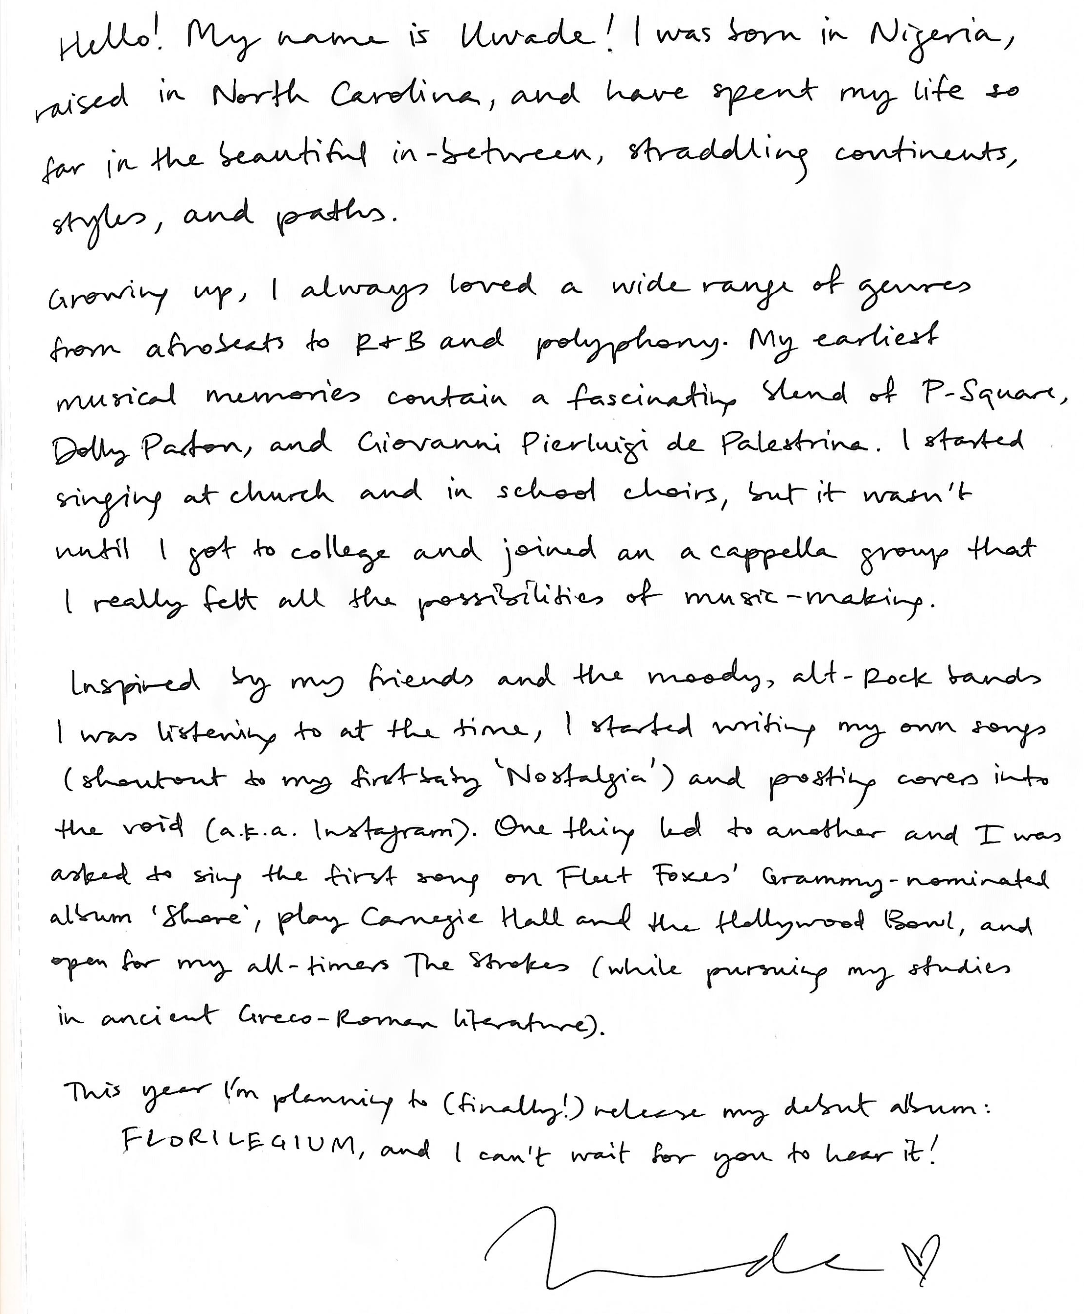 Hello! My name is Uwade! I was born in Nigeria,
raised in North Carolina, and have spent my life so
far in the beautiful in-between, straddling continents,
styles, and paths.
Growing up, I always loved a wide range of genres
from afrobeats to R+B and polyphony. My earliest
musical memories contain a fascinating blend of P-Square,
Dolly Parton, and Giovanni Pierluigi de Palestrina. I started
singing at church and in school choirs, but it wasn't
until I got to college and joined an a cappella group that
I really felt all the possibilities of music-making.
Inspired by my friends and the moody, alt-rock bands
I was listening to at the time, I started writing my own songs
(shoutout to my first baby 'Nostalgia') and posting covers into
the void (a.k.a. Instagram). One thing led to another and I was
asked to sing the first song on Fleet Foxes' Grammy-nominated
album 'Shore', play Carnegie Hall and the Hollywood Bowl, and
open for my all-timers The Strokes (while pursuing my studies
in ancient Greco-Roman literature).
This year I'm planning to (finally!) release my debut album:
FLORILEGIUM, and I can't wait for you to hear it!
Uwade ♡